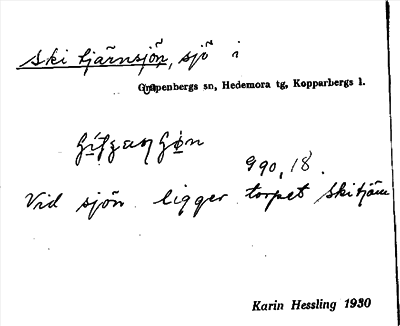 Skitjärnsjön, sjö i
Grangärpenbergs sn, Hedemora tg, Kopparbergs l.
990, 18.
Vid sjön ligger torpet Skitjärn
Karin Hessling 1930